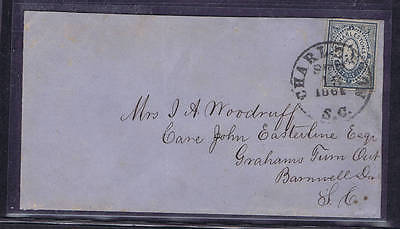 CHARLESTON
1861
S.C.
Mrs J A Woodruff
Care John Easterline Esqr
Grahams Turn Out
Barnwell Dis
S. C.